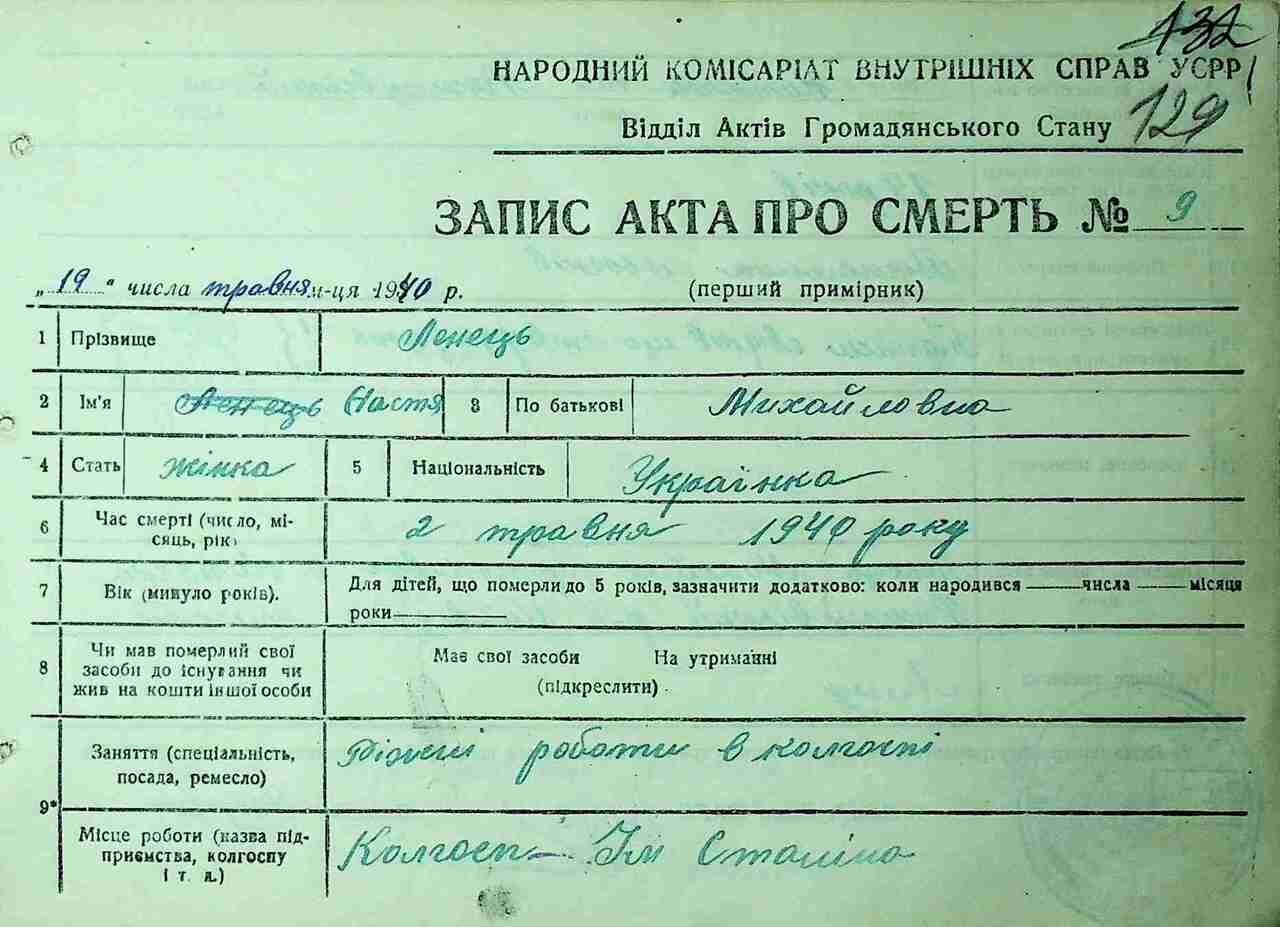 132
НАРОДНИЙ КОМІСАРІАТ ВНУТРІШНІХ СПРАВ УСРР
Відділ Актів Громадянського Стану 129
ЗАПИС АКТА ПРО СМЕРТЬ № 9
„19" числа травня м-ця 1940 р. (перший примірник)
1 Прізвище Ленець
2 Ім'я Ленець Настя 3 По батькові Михайловна
4 Стать жінка 5 Національність Українка
6 Час смерті (число, мі-
сяць, рік) 2 травня 1940 року
7 Вік (минуло років). Для дітей, що померли до 5 років, зазначити додатково: коли народився — числа — місяця
роки —
8 Чи мав померлий свої
засоби до існування чи
жив на кошти іншої особи
Має свої засоби На утриманні
(підкреслити).
9*
Заняття (спеціальність,
посада, ремесло)
Ріжні роботи в колгоспі
Місце роботи (назва під-
приємства, колгоспу
і т. д.)
Колгосп Ім Сталіна